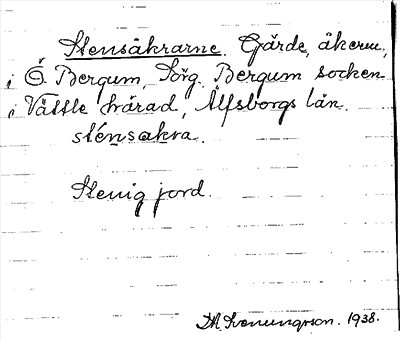 Stensåkrarne. Gärde, åkern,
i Ö. Bergum, Sörg. Bergum socken
i Vättle härad, Älfsborgs län.
sténsakra.
Stenig jord.
1938.